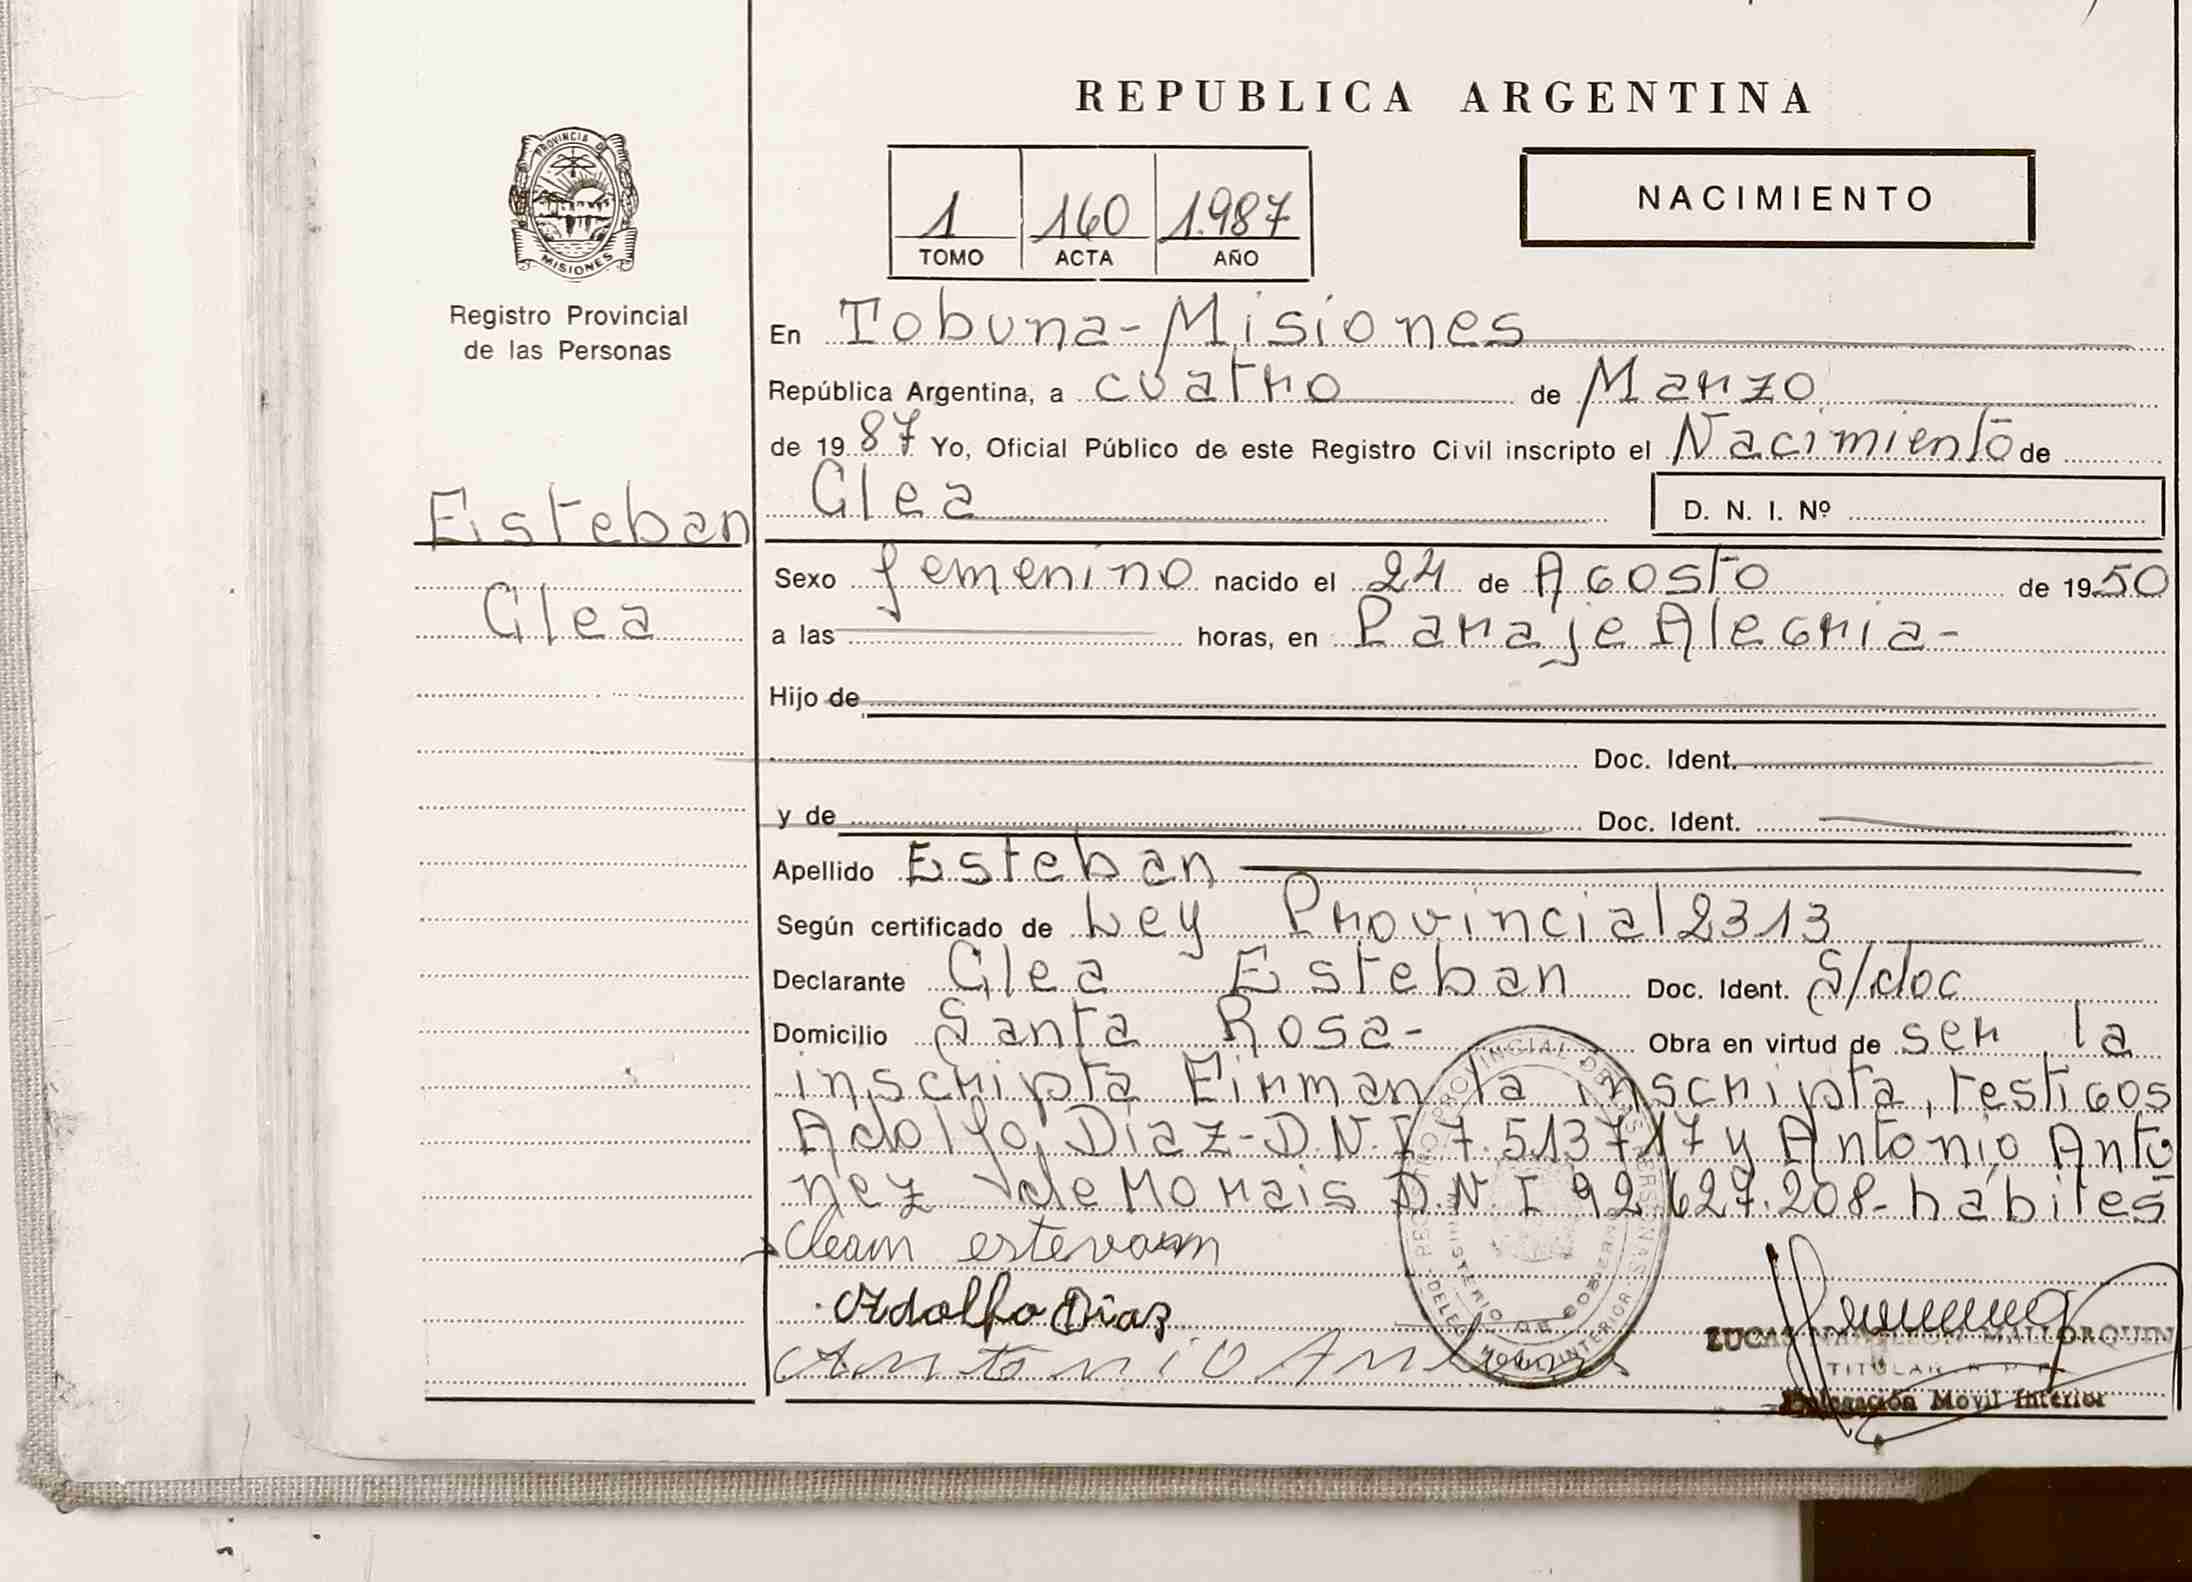 REPUBLICA ARGENTINA
PROVINCIA DE
MISIONES
Registro Provincial
de las Personas
1 160 1.987
TOMO ACTA AÑO
NACIMIENTO
En Tobuna-Misiones
República Argentina, a cuatro de Marzo
de 1987 Yo, Oficial Público de este Registro Civil inscripto el Nacimiento de
Clea D. N. I. Nº
Esteban
Clea
Sexo femenino nacido el 24 de Agosto de 1950
a las horas, en Paraje Alegria-
Hijo de
Doc. Ident.
y de Doc. Ident.
Apellido Esteban
Según certificado de Ley Provincial 2313
Declarante Clea Esteban Doc. Ident. S/doc
Domicilio Santa Rosa- Obra en virtud de ser la
inscripta Firman la inscripta, testigos
Adolfo Diaz-D.N.I 7.513717 y Antonio Antu
nez de Morais D.N.I 92.627.208- hábiles
Cleam estevam
Adolfo Díaz
Antonio
REGISTRO PROVINCIAL DE LAS PERSONAS
MINISTERIO DE GOBIERNO
MOVIL INTERIOR
LUCAS MALLORQUIN
TITULAR
Delegación Movil Interior